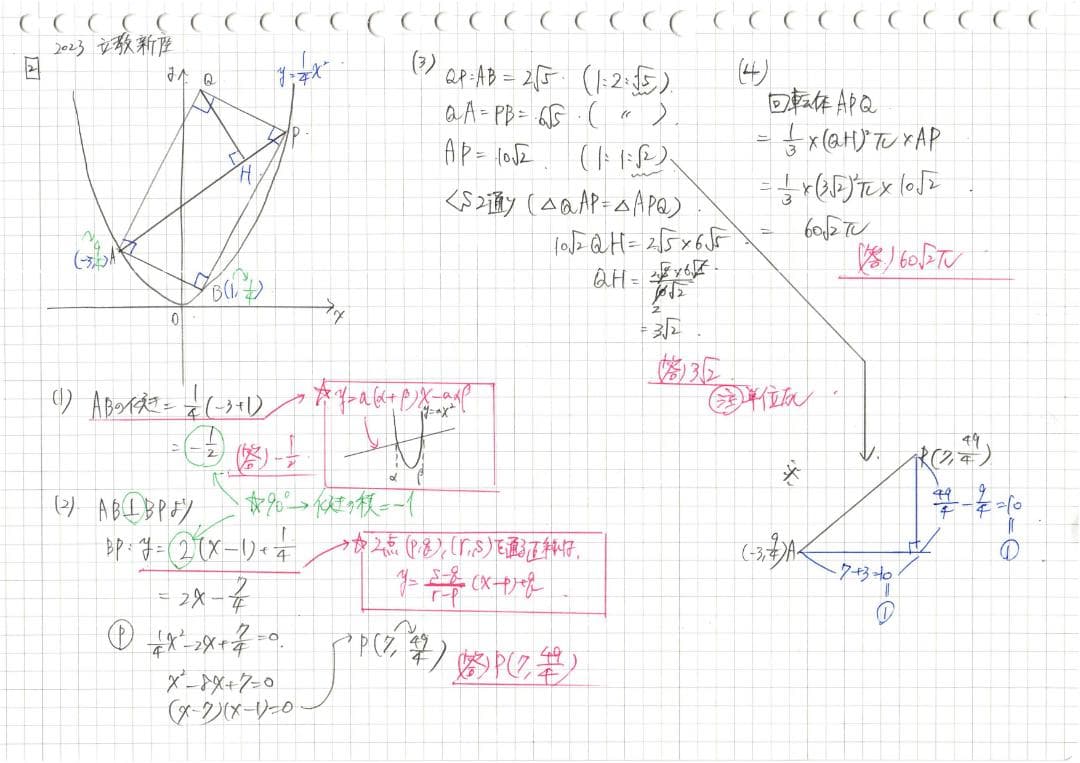 2023 立教新座
2
y
Q
y=1/4x²
P
H
A
(-3, 9/4)
B(1, 1/4)
O
x
(1) ABの傾き=1/4(-3+1)
=-1/2
(答)-1/2
☆y=a(α+β)x-aαβ
y=ax²
α β
(2) AB⊥BPより
☆90°→傾きの積=-1
BP: y=2(x-1)+1/4
=2x-7/4
☆2点(p,q),(r,s)を通る直線は、
y=(s-q)/(r-p)(x-p)+q
Ⓟ 1/4x²-2x+7/4=0.
x²-8x+7=0
(x-7)(x-1)=0
P(7, 49/4)
(答)P(7, 49/4)
(3) QP=AB=2√5. (1:2:√5).
QA=PB=6√5. ( 〃 ).
AP=10√2. (1:1:√2)
<S2通り(△QAP=△APQ).
10√2QH=2√5×6√5.
QH=2√5×6√5/10√2
2
=3√2.
(答)3√2
注 単位なし
(4)
回転体APQ
=1/3×(QH)²π×AP
=1/3×(3√2)²π×10√2.
=60√2π
(答)60√2π
※
P(7, 49/4)
49/4-9/4=10
①
(-3, 9/4)A
7+3=10
①